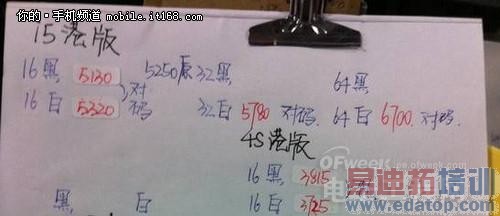 你的·手机频道 mobile.it168.com
15港版
16黑 5130 5250原 32黑 64黑
16白 5320 对码 32白 5780 对码. 64白 6700. 对码.
4S港版
16黑 3815
16白
黑 白
OFweek
ee.ofweek.com
易迪拓培训
www.edatop.com